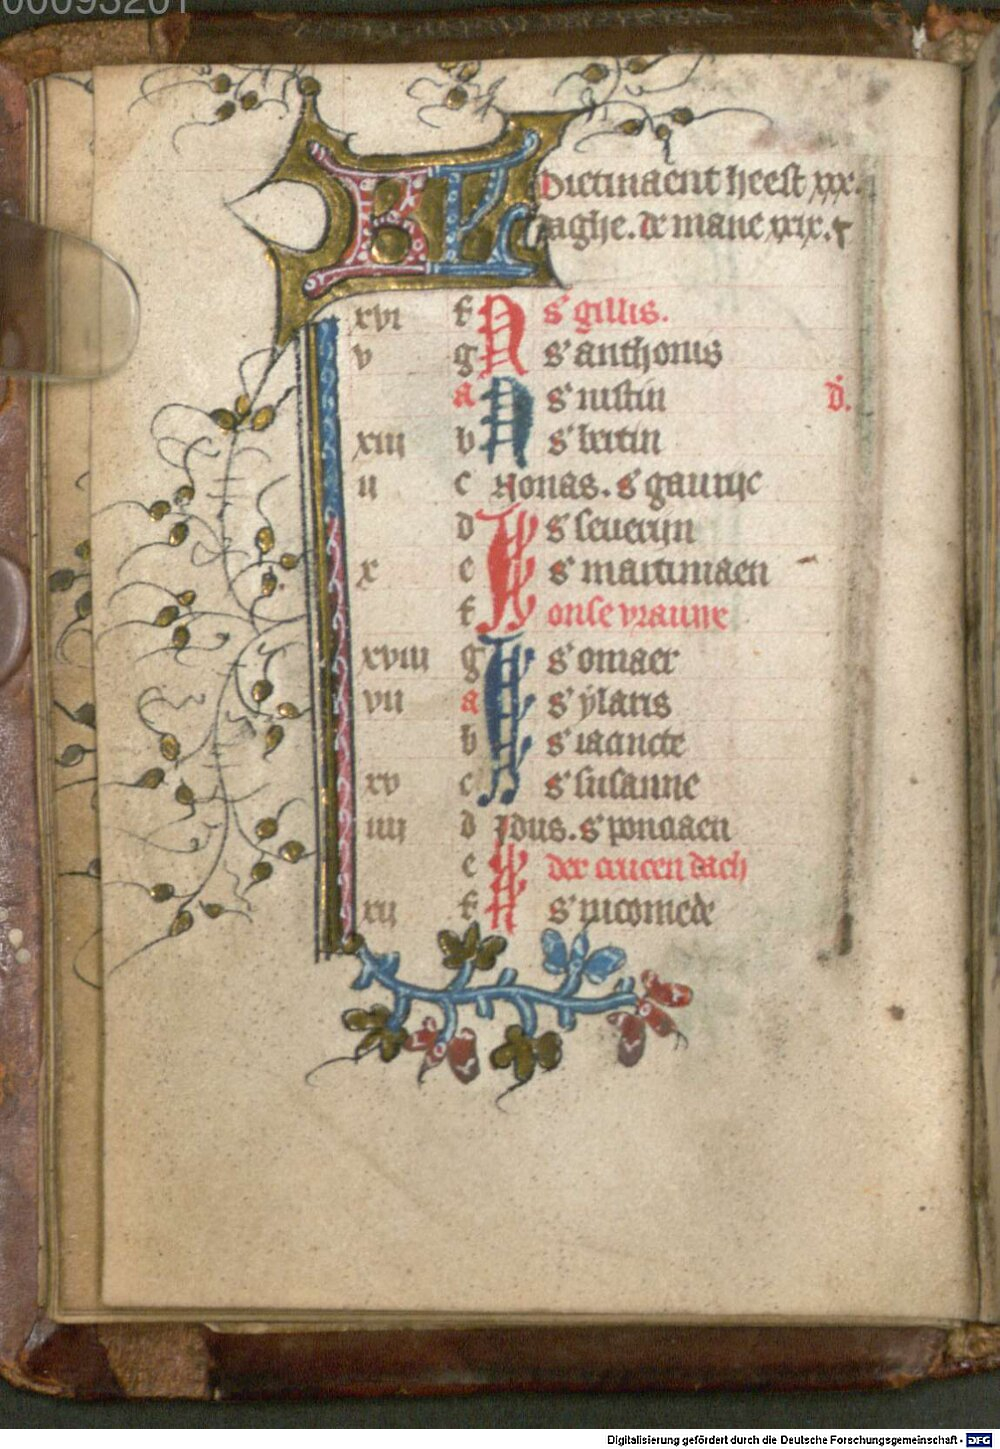 00093201
KL Pietmaent heest xxx.
daghe. de mane xxix.
xvi f N s' gillis.
v g s' anthonis
a N s' iustin d.
xiii b s' bertin
ii c Nonas. s' gauryc
d s' seueryn
x e s' martiniaen
f onse vrauwe
xviii g s' omaer
vii a s' ylaris
b s' iacincte
xv c s' susanne
iiii d Idus. s' ponciaen
e der crucen dach
xii f s' nicomede
Digitalisierung gefördert durch die Deutsche Forschungsgemeinschaft - DFG